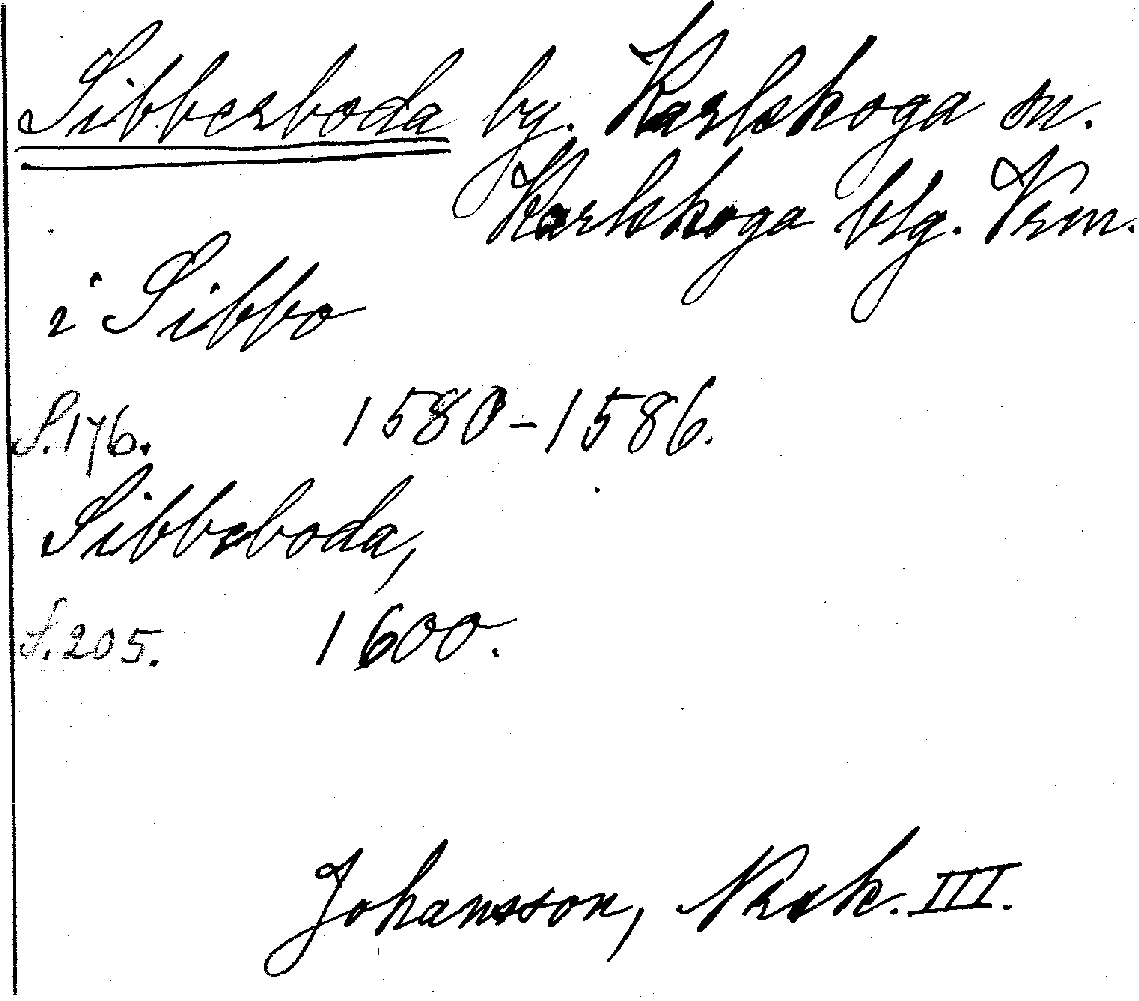 Sibberboda by. Karlskoga sn.
Karlskoga blg. Vrm.
i Sibbo
S. 176. 1580-1586.
Sibbeboda,
S. 205. 1600.
Johansson, III.